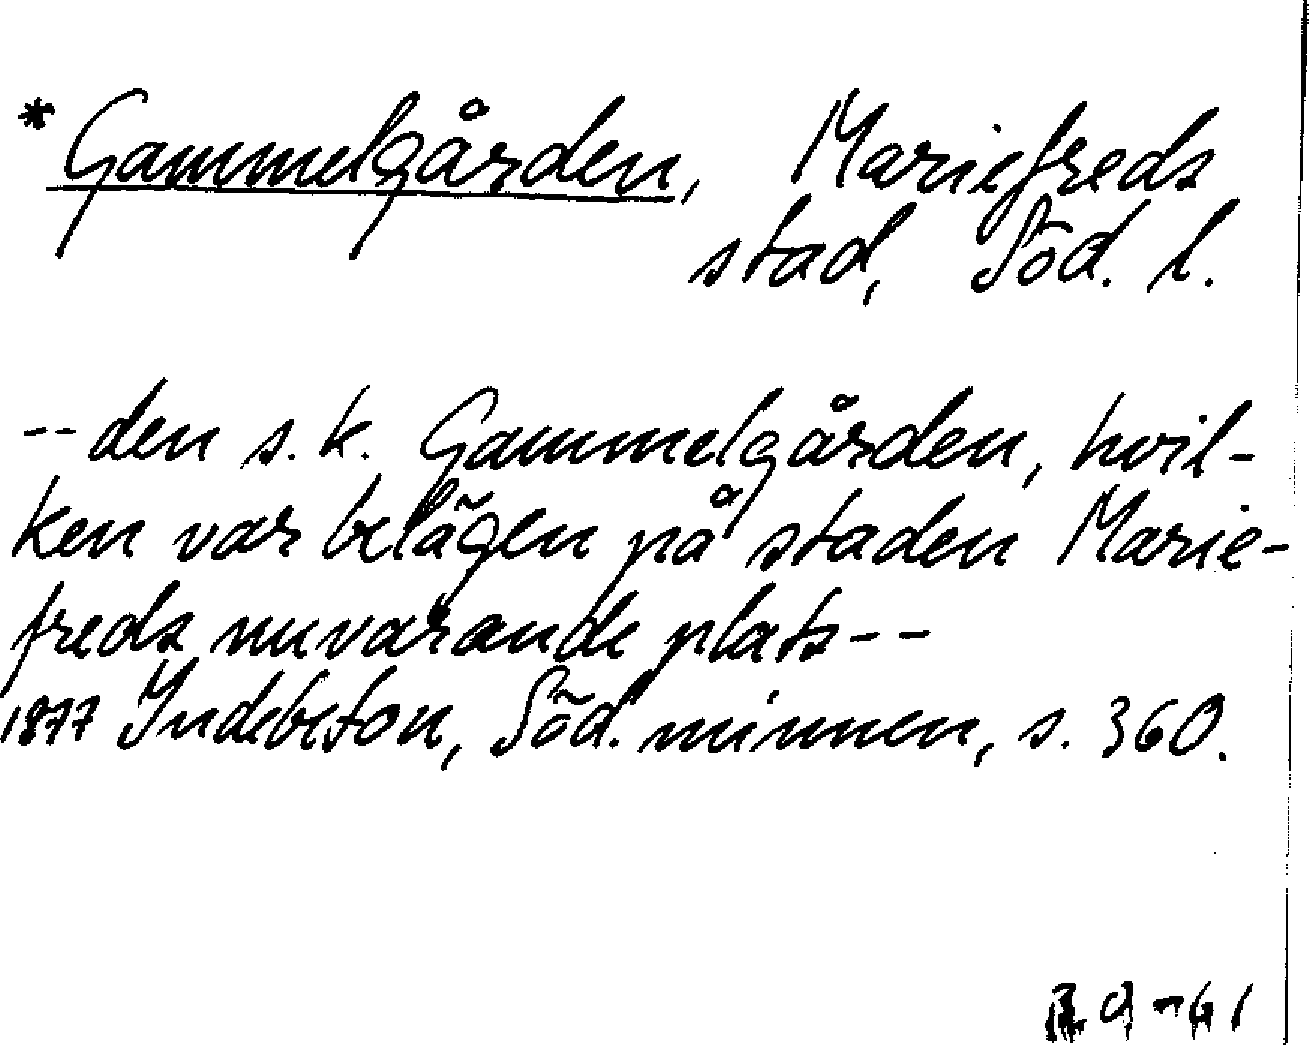 *Gammelgården, Mariefreds
stad, Söd. l.
--den s.k. Gammelgården, hvil-
ken var belägen på staden Marie-
freds nuvarande plats--
1877 Indebetou, Söd. minnen, s. 360.